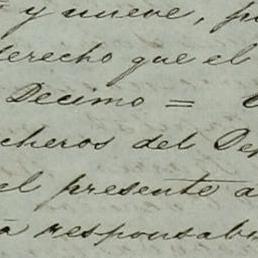 y nueve, p
derecho que el
Decimo =
cheros del De
el presente a
a responsab